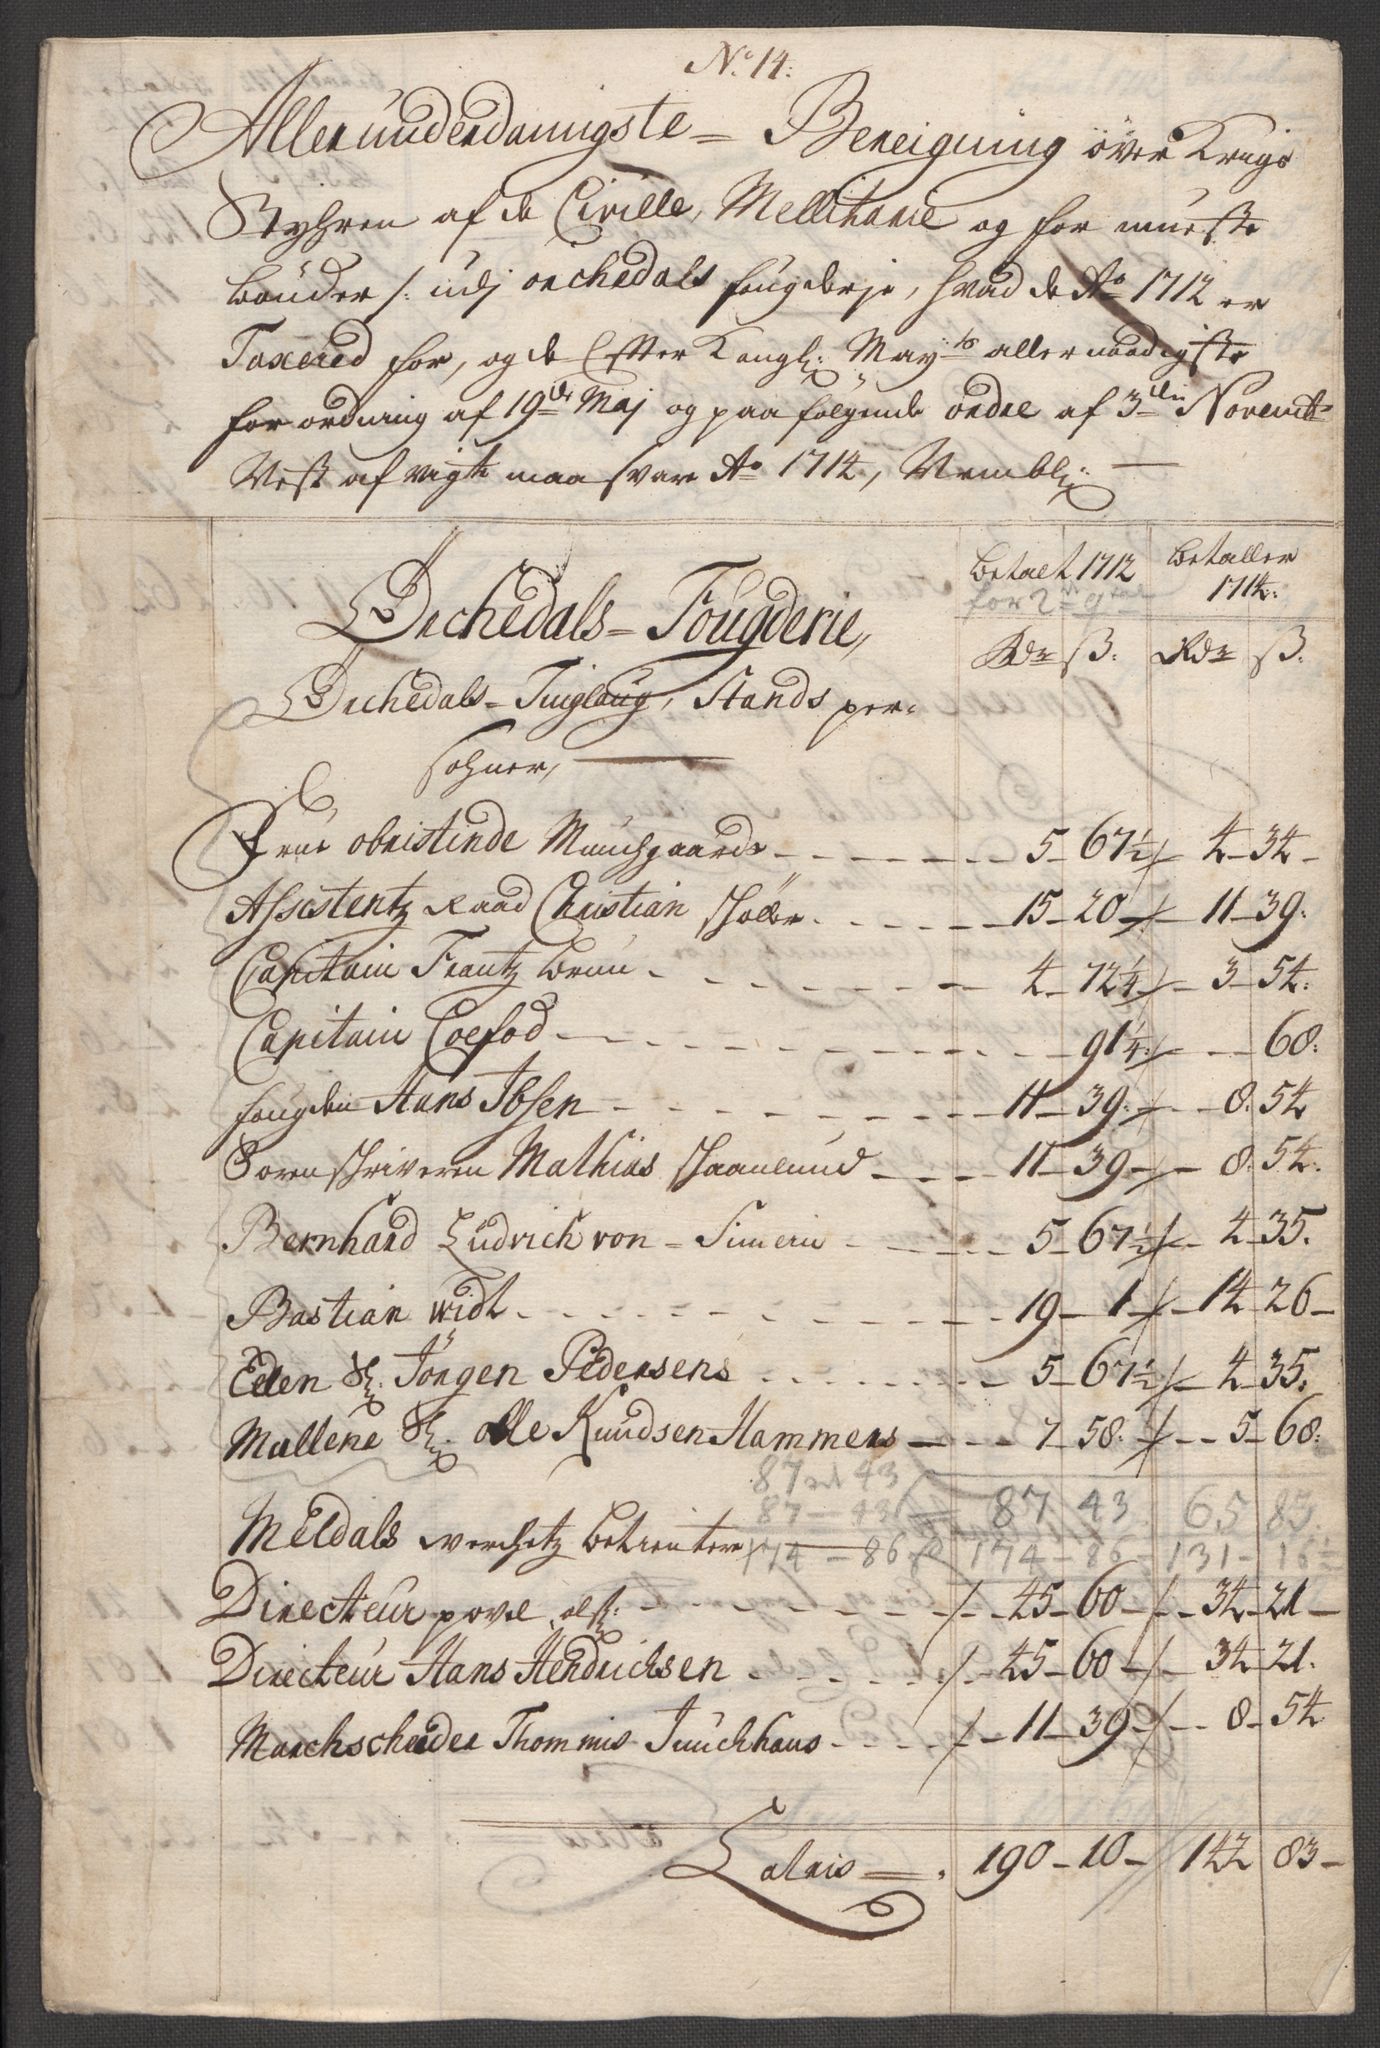 No 14:
Allerunderdannigste = Bereigning över Krigs
Styhren af de Civille, Mellitarie og for mueste
bönder /: udj orchedals fougderje, hvad de Ao 1712 er
Taxered for, og de Efter Kongl: Mayts allernaadigste
forordning af 19de Maj og paafølgende ordre af 3den Novemb:
Nest afvigte maa svare Ao 1714, Nembl:
betalt 1712 betaller
for 2de qtal 1714:
Orchedals = Fougderie,
Rdr ß: Rdr ß:
Orchedals = Tinglaug, Stands per=
sohner,
Frue obristinde Munchgaards 5 - 67½ / 4 - 34 -
Assistentz Raad Christian schøller 15 - 20 - / 11 - 39:
Capitain Frantz brun 4 - 72¼ / 3 - 54:
Capitain Coefod 91¼ / 68:
fougden Hans Ibsen 11 - 39 - / 8: 54
Sorenschriveren Mathias schaanlund 11 - 39 - / 8: 54:
Bernhard Ludrich von = Simerin 5 - 67½ / 4 - 35.
Bastian widt 19 - 1 - / 14 - 26 -
Eelen Sl: Jörgen Pedersens 5 - 67½ / 4 - 35.
Mallene Sl: olle Knudsen Hammers 7 - 58: / 5 - 68:
87 43
87 - 43 87 43 65 85
Meldals werchetz betienter 174 - 86 174 - 86 - 131 - 16½
Directeur povel ols: / 45 - 60 - / 34 - 21 -
Directeur Hans Hendrichsen / 45 - 60 - / 34 - 21.
Marchscheider Thommis Juuchhans / 11 - 39 - / 8 - 54
Latris = . 190 - 10 - / 142 83 -